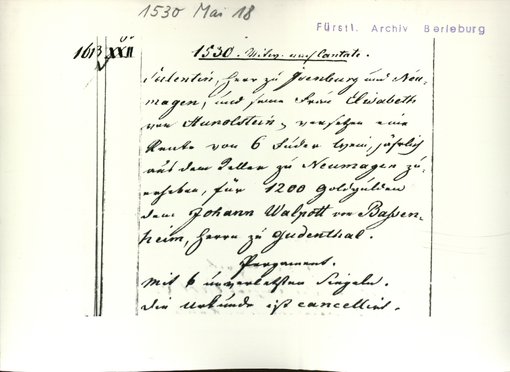 1530 Mai 18
Fürstl. Archiv Berleburg
1613 XXII
1530. Mitw. nach Cantate.
Salentin, Herr zu Isenburg und Neu-
magen, und seine Frau Elisabeth
von Hunoldstein, versetzen eine
Rente von 6 Fuder Wein, jährlich
aus dem Keller zu Neumagen zu
erheben, für 1200 Goldgulden
dem Johann Walpott von Bassen-
heim, Herrn zu Gudenthal.
Pergament.
Mit 6 unverletzten Siegeln.
Die Urkunde ist cancellirt.